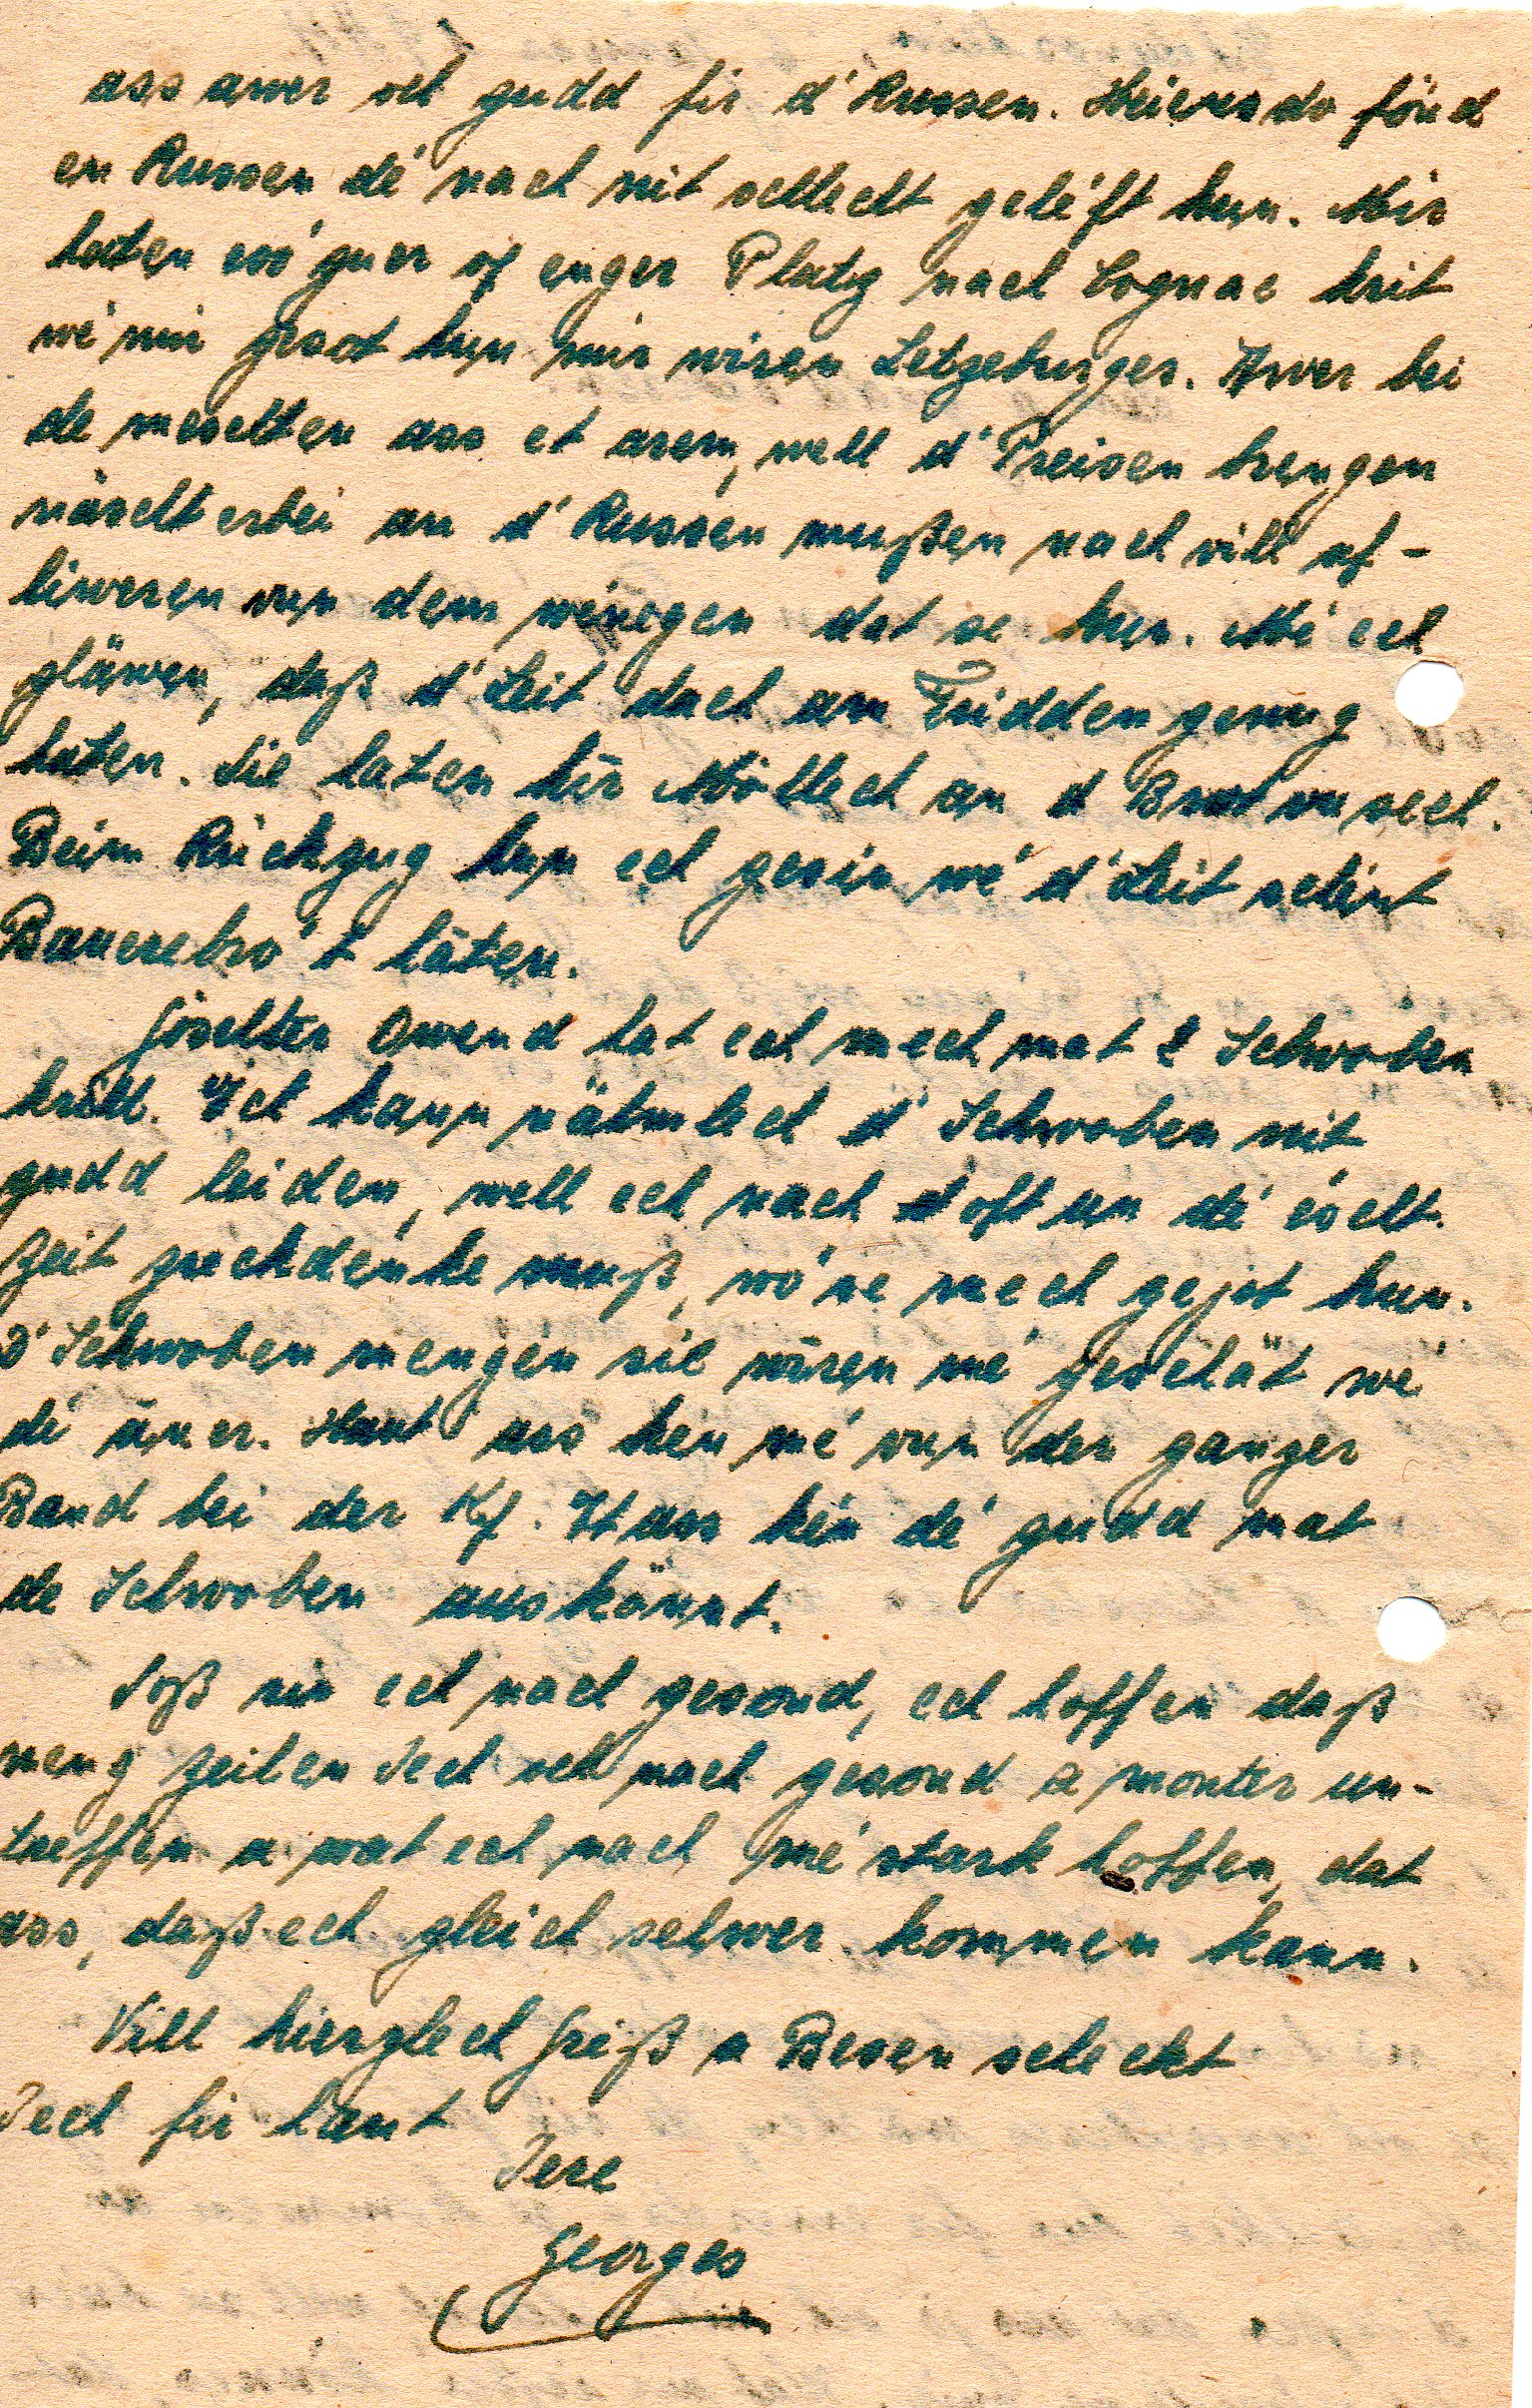 ass awer och gudd fir d'Russen. Heiansdo fönd
en Russen dé nach nit schlecht geléft hun. Mir
haten eso'guer of enger Platz nach Cognac krit
wé mir gesot hun mir wiren Letzeburger. Awer bei
de meschten ass et arem, well d'Preisen brengen
näscht erbei an d'Russen mußen nach vill of-
liweren vun dem wénegen dat se hun. Mé ech
gläwen, daß d'Leit dach am Fridden genug
haten. Sie haten hir Möllech an d Brot vu sech.
Beim Rückzug hun ech gesin wé d'Leit schint
Bauerebro't häten.
Göschter Owend hat ech mech mat 2 Schwoben
krill. Ech kann nätmlech d'Schwoben nit
gudd leiden, well ech nach oft un dé éscht.
Zeit zreckdenke muß, wo' se mech gejot hun.
D'Schwoben mengen sie wiren mé gescheit wé
dé äner. Haut ass ken mé vun der ganzer
Band bei der Kp. Et ass kén dé gudd mat
de Schwoben auskönnt.
Soß sin ech nach gesond, ech hoffen daß
meng Zeilen Iech och nach gesond a monter un-
treffen a wat ech nach mé stark hoffen, dat
ass, daß ech gleich selwer kommen kann.
Vill hierzlech Griß a Besen scheckt
Iech fir haut
Iere
Georges